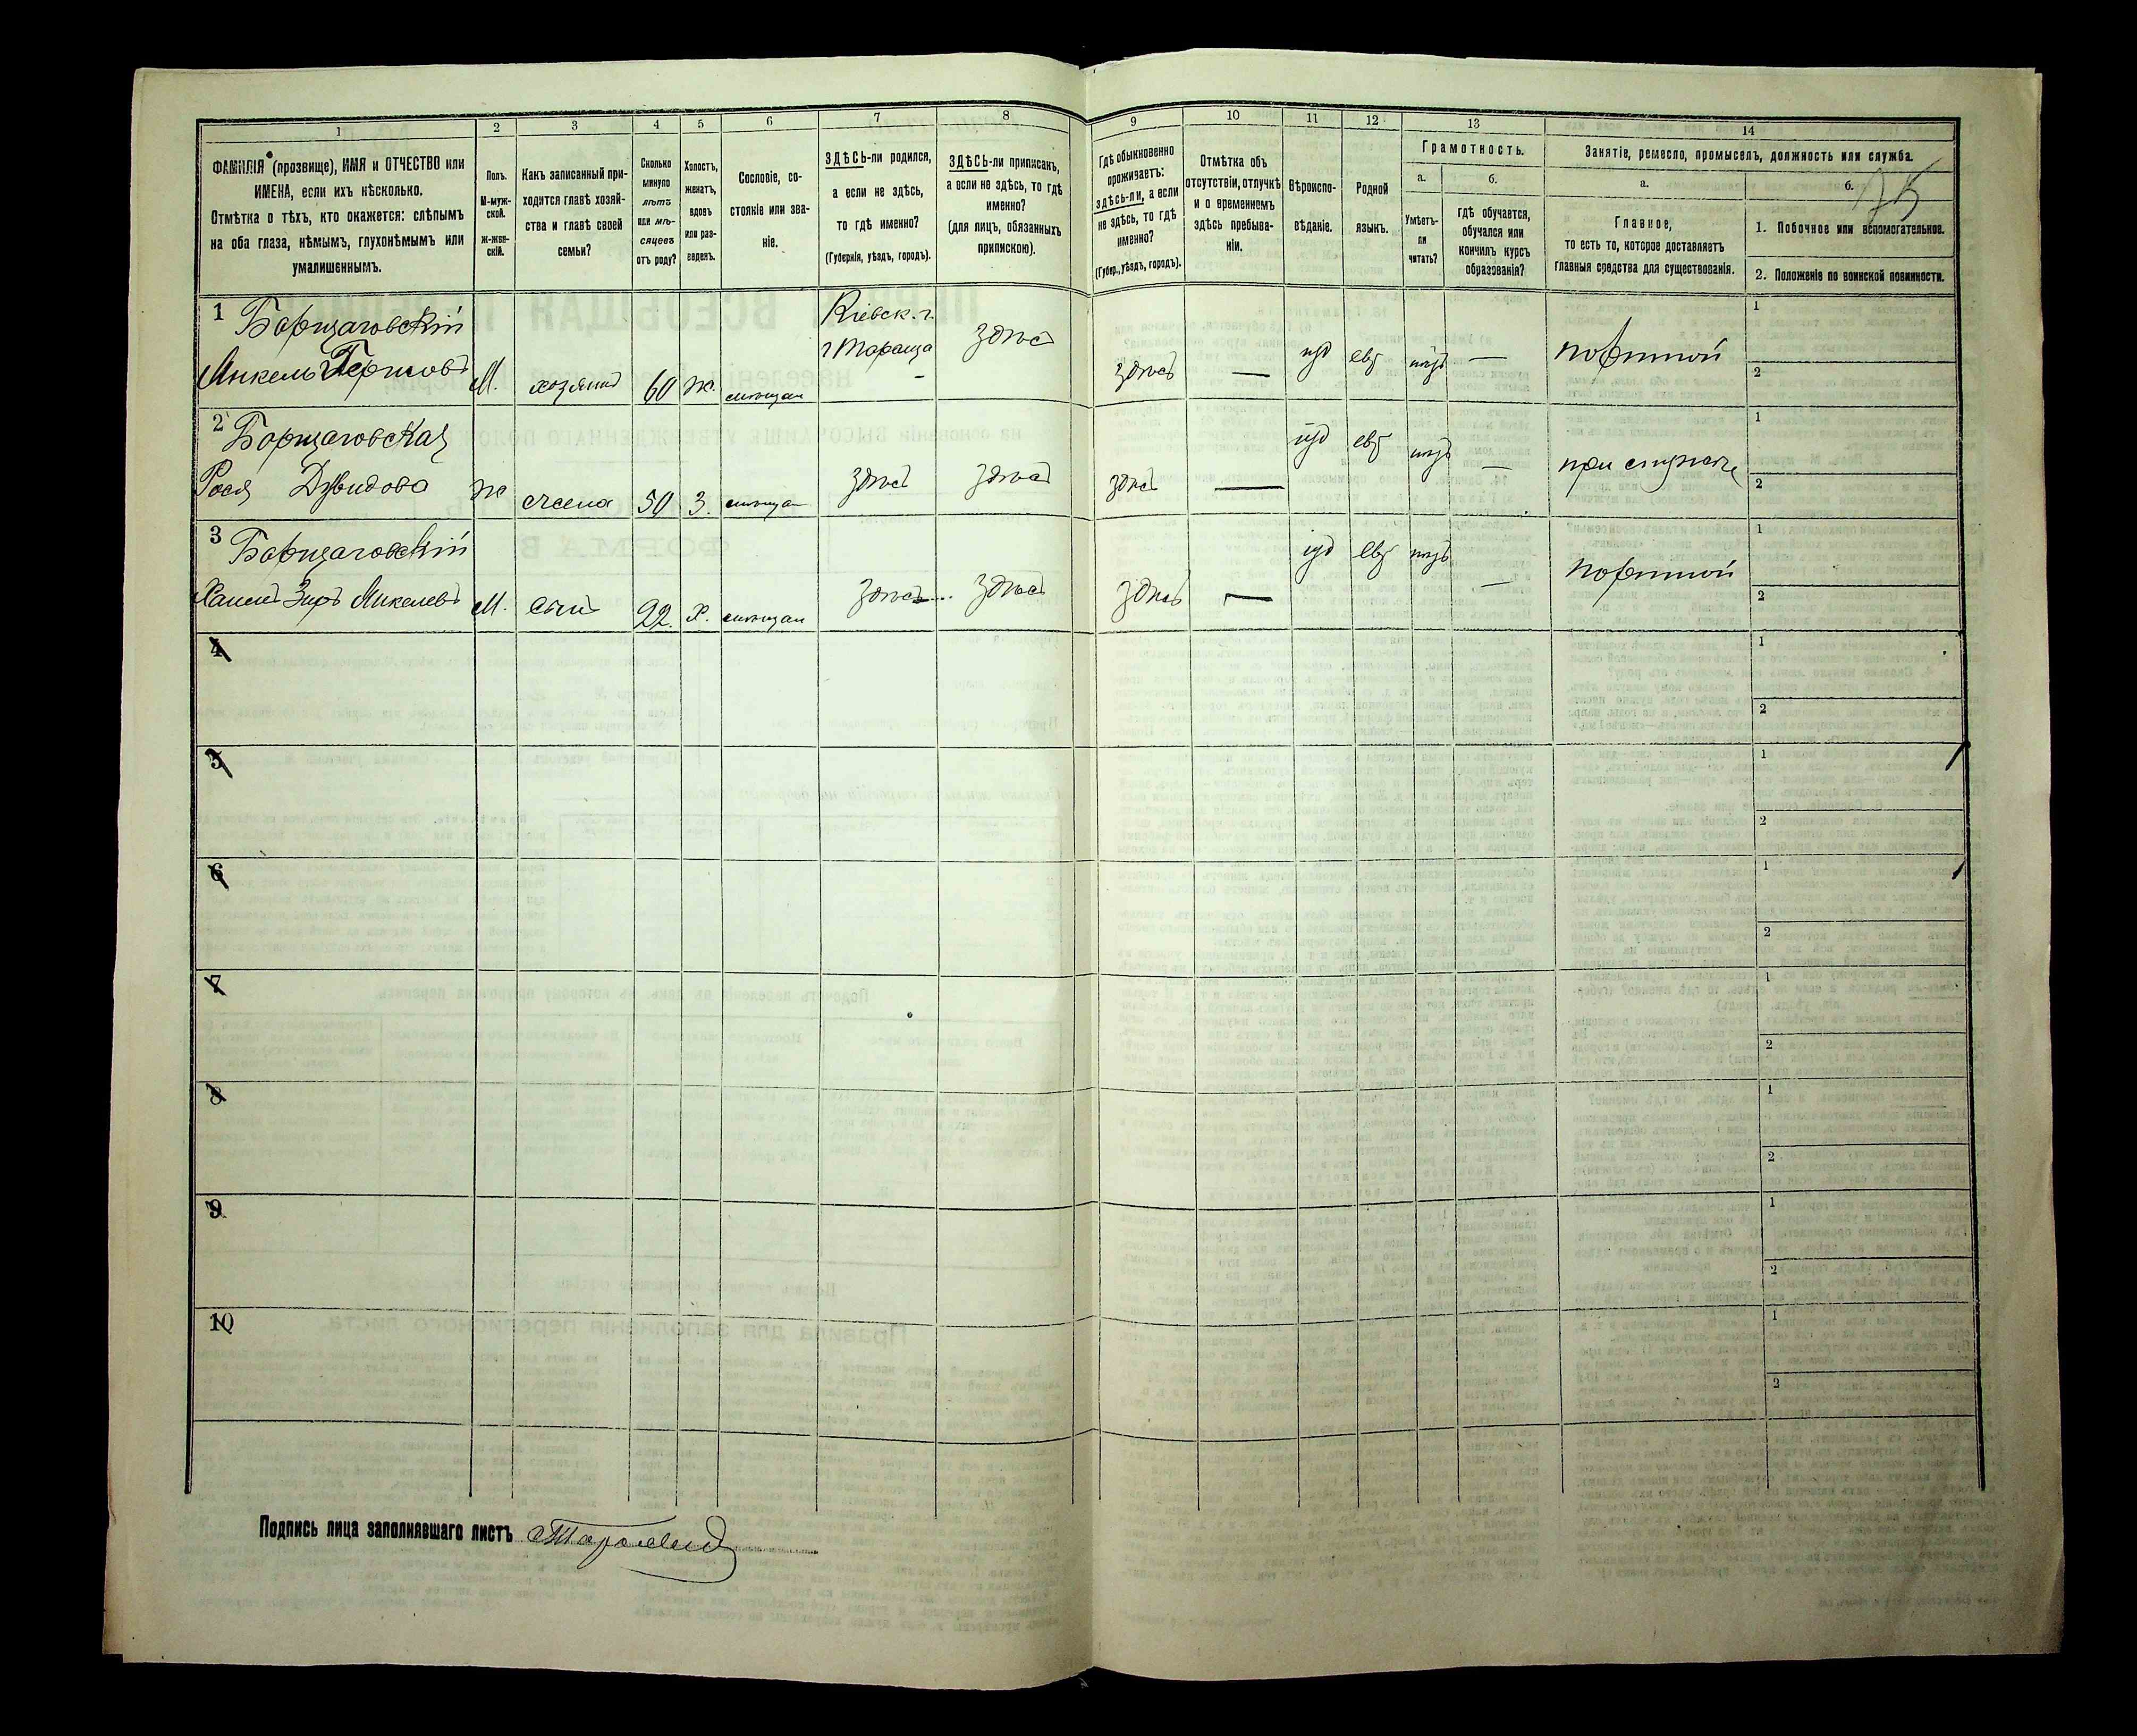 1
2
3
4
5
6
7
8
9
10
11
12
13
14
ФАМИЛІЯ (прозвище), ИМЯ и ОТЧЕСТВО или
ИМЕНА, если ихъ нѣсколько.
Отмѣтка о тѣхъ, кто окажется: слѣпымъ
на оба глаза, нѣмымъ, глухонѣмымъ или
умалишеннымъ.
Полъ.
М-муж-
ской.
Ж-жен-
скій.
Какъ записанный при-
ходится главѣ хозяй-
ства и главѣ своей
семьи?
Сколько
минуло
лѣтъ
или мѣ-
сяцевъ
отъ роду?
Холостъ,
женатъ,
вдовъ
или раз-
веденъ.
Сословіе, со-
стояніе или зва-
ніе.
ЗДѢСЬ-ли родился,
а если не здѣсь,
то гдѣ именно?
(Губернія, уѣздъ, городъ).
ЗДѢСЬ-ли приписанъ,
а если не здѣсь, то гдѣ
именно?
(для лицъ, обязанныхъ
припискою).
Гдѣ обыкновенно
проживаетъ:
здѣсь-ли, а если
не здѣсь, то гдѣ
именно?
(Губер., уѣздъ, городъ).
Отмѣтка объ
отсутствіи, отлучкѣ
и о временномъ
здѣсь пребыва-
ніи.
Вѣроиспо-
вѣданіе.
Родной
языкъ.
Грамотность.
а.
Умѣетъ-
ли
читать?
б.
Гдѣ обучается,
обучался или
кончилъ курсъ
образованія?
Занятіе, ремесло, промыселъ, должность или служба.
а.
Главное,
то есть то, которое доставляетъ
главныя средства для существованія.
б.
75
1. Побочное или вспомогательное.
2. Положеніе по воинской повинности.
1 Борщаговскій
Янкель Гершовъ М. хозяинъ 60 ж. мѣщан
Кіевск. г.
г Тараща
здѣсь здѣсь — іуд евр — портной 1
2
2 Борщаговская
Рося Дувидова ж жена 50 З. мѣщан здѣсь здѣсь здѣсь — іуд евр — 1
2
3 Борщаговскій
М. сынъ 22. Х. мѣщан здѣсь здѣсь здѣсь — іуд евр — портной 1
2
4 1
2
5 1
2
6 1
2
7 1
2
8 1
2
9 1
2
10 1
2
Подпись лица заполнявшаго листъ